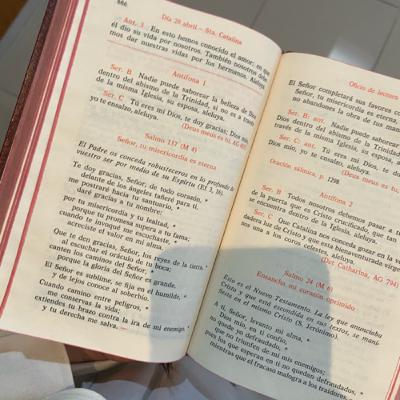 866
Día 28 abril – Sta. Catalina
Ant. 3 En esto hemos conocido el amor: en que
él dio su vida por nosotros. También nosotros debe-
mos dar nuestras vidas por los hermanos. Aleluya.
Antífona 1
Ser. B Nadie puede saborear la belleza de Dios
dentro del abismo de la Trinidad, si no es a través
de la misma Iglesia, su esposa, aleluya.
Ser. C Tú eres mi Dios, te doy gracias; Dios mío,
yo te ensalzo, aleluya.
(Deus meus es tu, AG
Salmo 117 (M 4)
Señor, tu misericordia es eterna
El Padre os conceda robusteceros en lo profundo de
vuestro ser por medio de su Espíritu (Ef 3, 16)
Te doy gracias, Señor, de todo corazón, *
delante de los ángeles tañeré para ti,
me postraré hacia tu santuario, *
daré gracias a tu nombre:
por tu misericordia y tu lealtad, *
porque tu promesa supera a tu fama;
cuando te invoqué, me escuchaste, *
acreciste el valor en mi alma.
Que te den gracias, Señor, los reyes de la tierra, *
al escuchar el oráculo de tu boca;
canten los caminos del Señor, *
porque la gloria del Señor es grande.
El Señor es sublime, se fija en el humilde, *
y de lejos conoce al soberbio.
Cuando camino entre peligros, *
me conservas la vida;
extiendes tu brazo contra la ira de mi enemigo *
y tu derecha me salva.
Oficio de lectura
El Señor completará sus favores
Señor, tu misericordia es eterna
no abandones la obra de tus manos
Ser. B: ant. Nadie puede saborear
Dios dentro del abismo de la Trinidad,
través de la misma Iglesia, su esposa,
Ser. C: ant. Tú eres mi Dios, te
Dios mío, yo te ensalzo, aleluya.
(Deus meus es tu,
Oración sálmica, p. 1298
Antífona 2
Ser. B Todos nosotros debemos pasar a
de la puerta que es Cristo crucificado, que
se encuentra dentro de la Iglesia, aleluya.
Ser. C Que Catalina nos conceda
dar luz de Cristo y que esta bienaventurada virgen
una a los coros celestes, aleluya.
(Det Catharina, AG 794)
Salmo 24 (M 6)
Ensancha mi corazón oprimido
Este es el Nuevo Testamento. La ley que anunciaba
Cristo y que está escondida en sus textos, se mani-
fiesta en el mismo Cristo (S. Jerónimo).
A ti, Señor, levanto mi alma, *
Dios mío, en ti confío,
no quede yo defraudado, *
que no triunfen de mí mis enemigos;
pues los que esperan en ti no quedan defraudados, *
mientras que el fracaso malogra a los traidores.